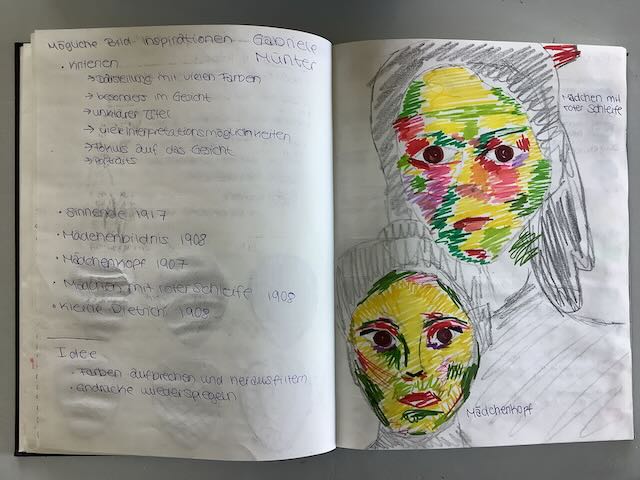 Mögliche Bild-Inspirationen - Gabriele Münter
• Kriterien
→ Darstellung mit vielen Farben
→ besonders im Gesicht
→ unklarer Titel
→ viele Interpretationsmöglichkeiten
→ Fokus auf das Gesicht
→ Portraits
• Sinnende 1917
• Mädchenbildnis 1908
• Mädchenkopf 1907
• Mädchen mit roter Schleife 1908
• Kleine Dietrich 1908
Idee
• Farben aufbrechen und herausfiltern
• Eindrücke wiederspiegeln
Mädchen mit
roter Schleife
Mädchenkopf